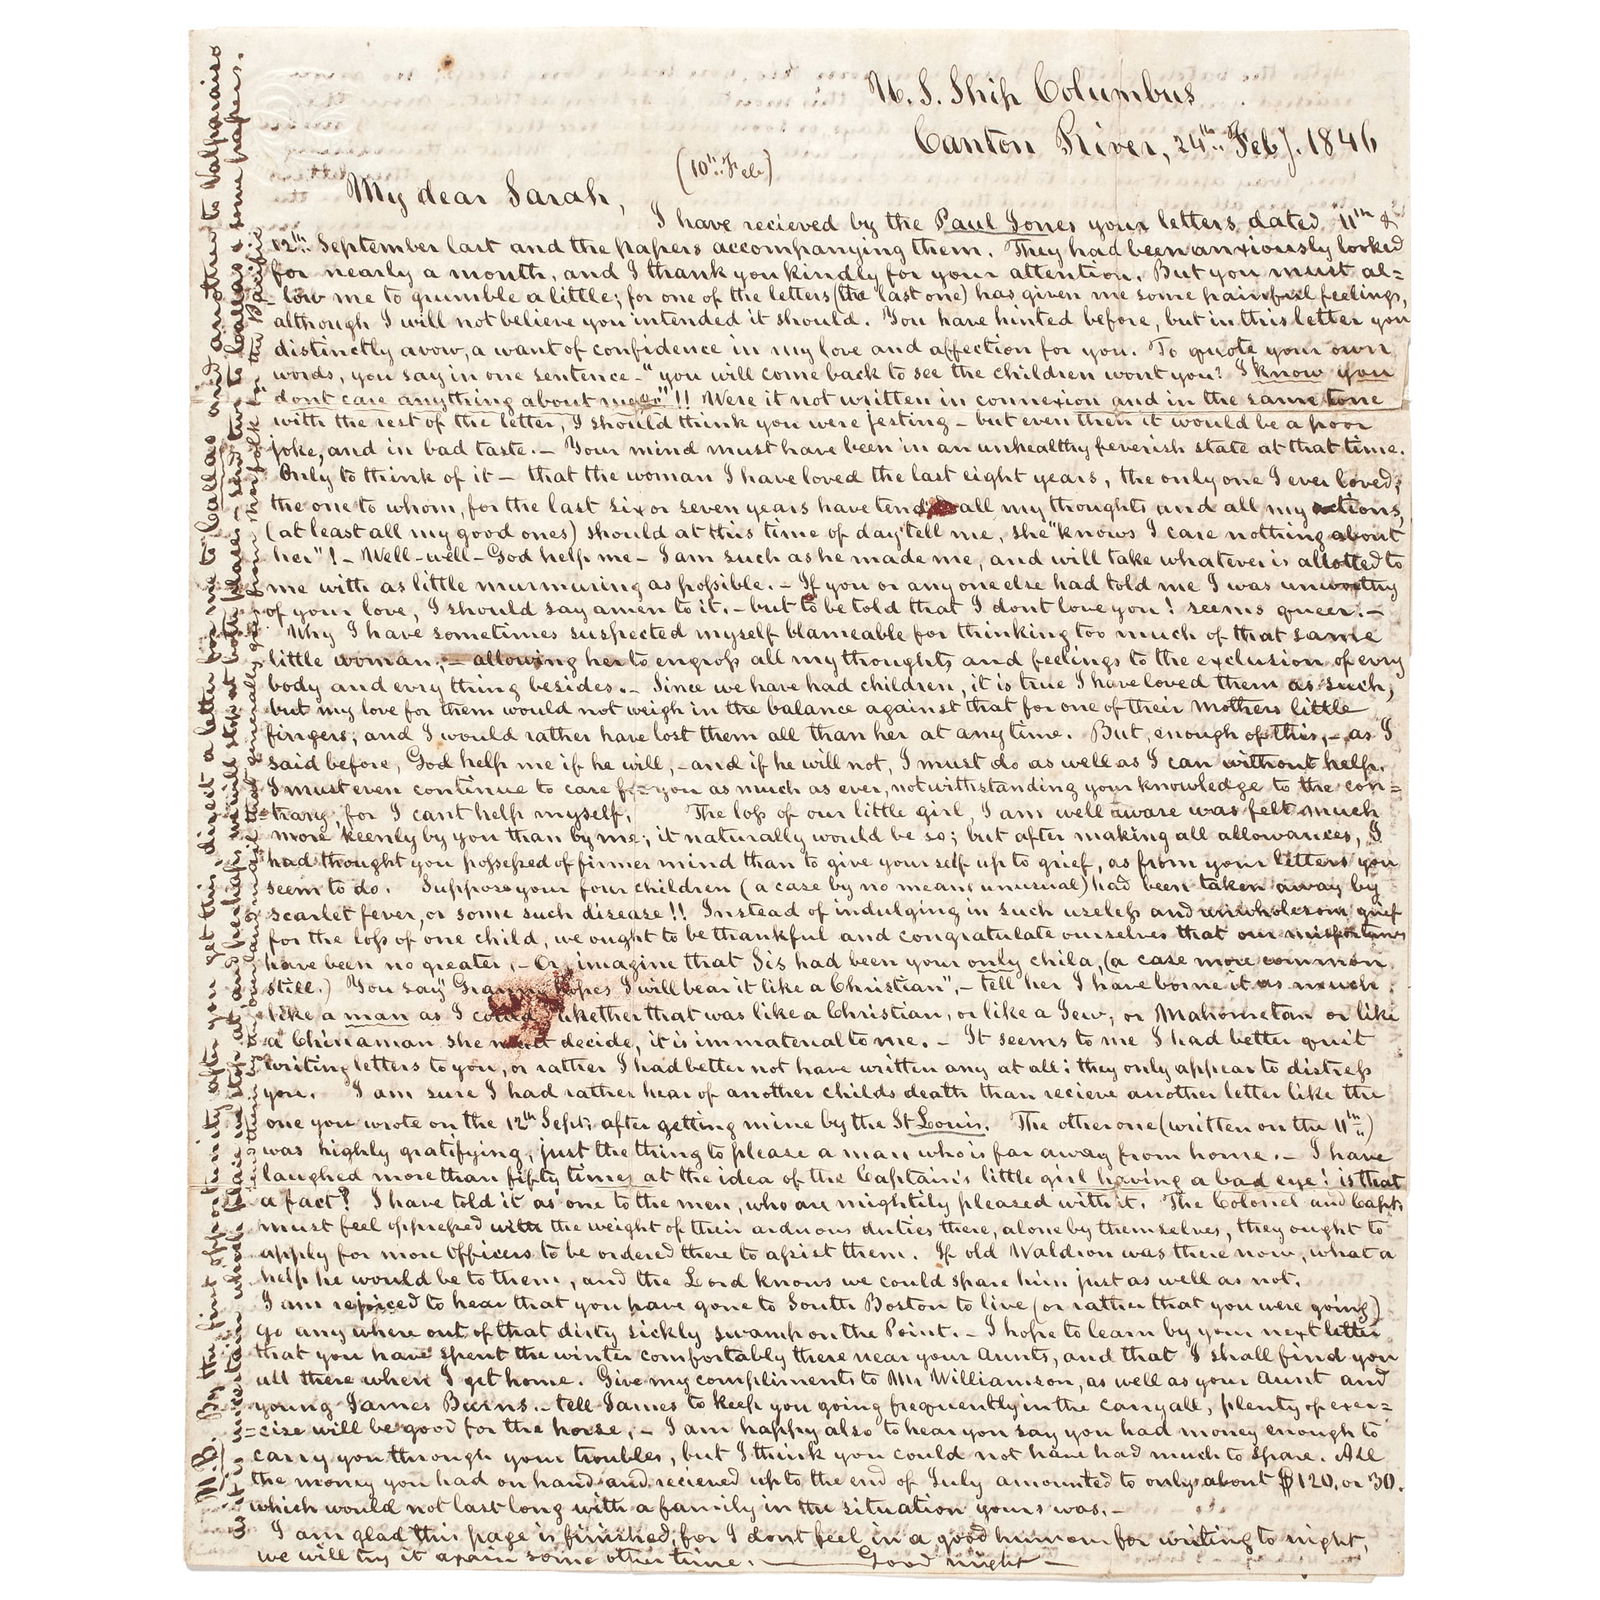 U. S. Ship Columbus
Canton River, 24th Feby. 1846
(10th Feb)
My dear Sarah,
I have recieved by the Paul Jones your letters dated 11th &
12th September last and the papers accompanying them. They had been anxiously looked
for nearly a month, and I thank you kindly for your attention. But you must al=
=low me to grumble a little; for one of the letters (the last one) has given me some painful feelings,
although I will not believe you intended it should. You have hinted before, but in this letter you
distinctly avow, a want of confidence in my love and affection for you. To quote your own
words, you say in one sentence - "you will come back to see the children wont you? I know you
dont care anything about me"!! Were it not written in connexion and in the same tone
with the rest of the letter, I should think you were jesting - but even then it would be a poor
joke, and in bad taste. - Your mind must have been in an unhealthy feverish state at that time.
Only to think of it - that the woman I have loved the last eight years, the only one I ever loved;
the one to whom, for the last six or seven years have tend all my thoughts and all my actions,
(at least all my good ones) should at this time of day tell me, she "knows I care nothing about
her"! - Well - well - God help me - I am such as he made me, and will take whatever is allotted to
me with as little murmuring as possible. - If you or any one else had told me I was unworthy
of your love, I should say amen to it. - but to be told that I dont love you! seems queer. -
Why I have sometimes suspected myself blameable for thinking too much of that same
little woman; - allowing her to engross all my thoughts and feelings to the exclusion of evry
body and evry thing besides. - Since we have had children, it is true I have loved them as such,
but my love for them would not weigh in the balance against that for one of their mothers little
fingers; and I would rather have lost them all than her at any time. But, enough of this, - as I
said before, God help me if he will, - and if he will not, I must do as well as I can without help.
I must even continue to care for you as much as ever, notwithstanding your knowledge to the con=
=trary, for I cant help myself. The loss of our little girl, I am well aware was felt much
more keenly by you than by me; it naturally would be so; but after making all allowances, I
had thought you possessed of firmer mind than to give yourself up to grief, as from your letters you
seem to do. Suppose your four children (a case by no means unusual) had been taken away by
scarlet fever, or some such disease!! Instead of indulging in such useless and unwholesome grief
for the loss of one child, we ought to be thankful and congratulate ourselves that our misfortunes
have been no greater. - Or, imagine that Sis had been your only child, (a case more common
still.) You say "Granny hopes I will bear it like a Christian", - tell her I have borne it as much
like a man as I could, whether that was like a Christian, or like a Jew, or Mahometan or like
a Chinaman she must decide, it is immaterial to me. - It seems to me I had better quit
writing letters to you, or rather I had better not have written any at all; they only appear to distress
you. I am sure I had rather hear of another childs death than recieve another letter like the
one you wrote on the 12th Sept. after getting mine by the St Louis. The other one (written on the 11th)
was highly gratifying, just the thing to please a man who is far away from home. - I have
laughed more than fifty times at the idea of the Captain's little girl having a bad eye! is that
a fact? I have told it as one to the men, who are mightily pleased with it. The Colonel and Capt.
must feel oppressed with the weight of their arduous duties there, alone by themselves, they ought to
apply for more officers to be ordered there to assist them. If old Waldron was there now, what a
help he would be to them, and the Lord knows we could spare him just as well as not.
I am rejoiced to hear that you have gone to South Boston to live (or rather that you were going)
go any where out of that dirty sickly swamp on the Point. - I hope to learn by your next letter
that you have spent the winter comfortably there near your Aunts, and that I shall find you
all there when I get home. Give my compliments to Mr Williamson, as well as your Aunt and
young James Burns. - tell James to keep you going frequently in the carryall, plenty of exer=
=cise will be good for the horse. - I am happy also to hear you say you had money enough to
carry you through your troubles, but I think you could not have had much to spare. All
the money you had on hand and recieved up to the end of July amounted to only about $120. or 30.
which would not last long with a family in the situation yours was. -
I am glad this page is finished, for I dont feel in a good humour for writing to night,
we will try it again some other time. Good night
N.B. By the first opportunity after you get this, direct a letter for me to Callao and another to Valparaiso